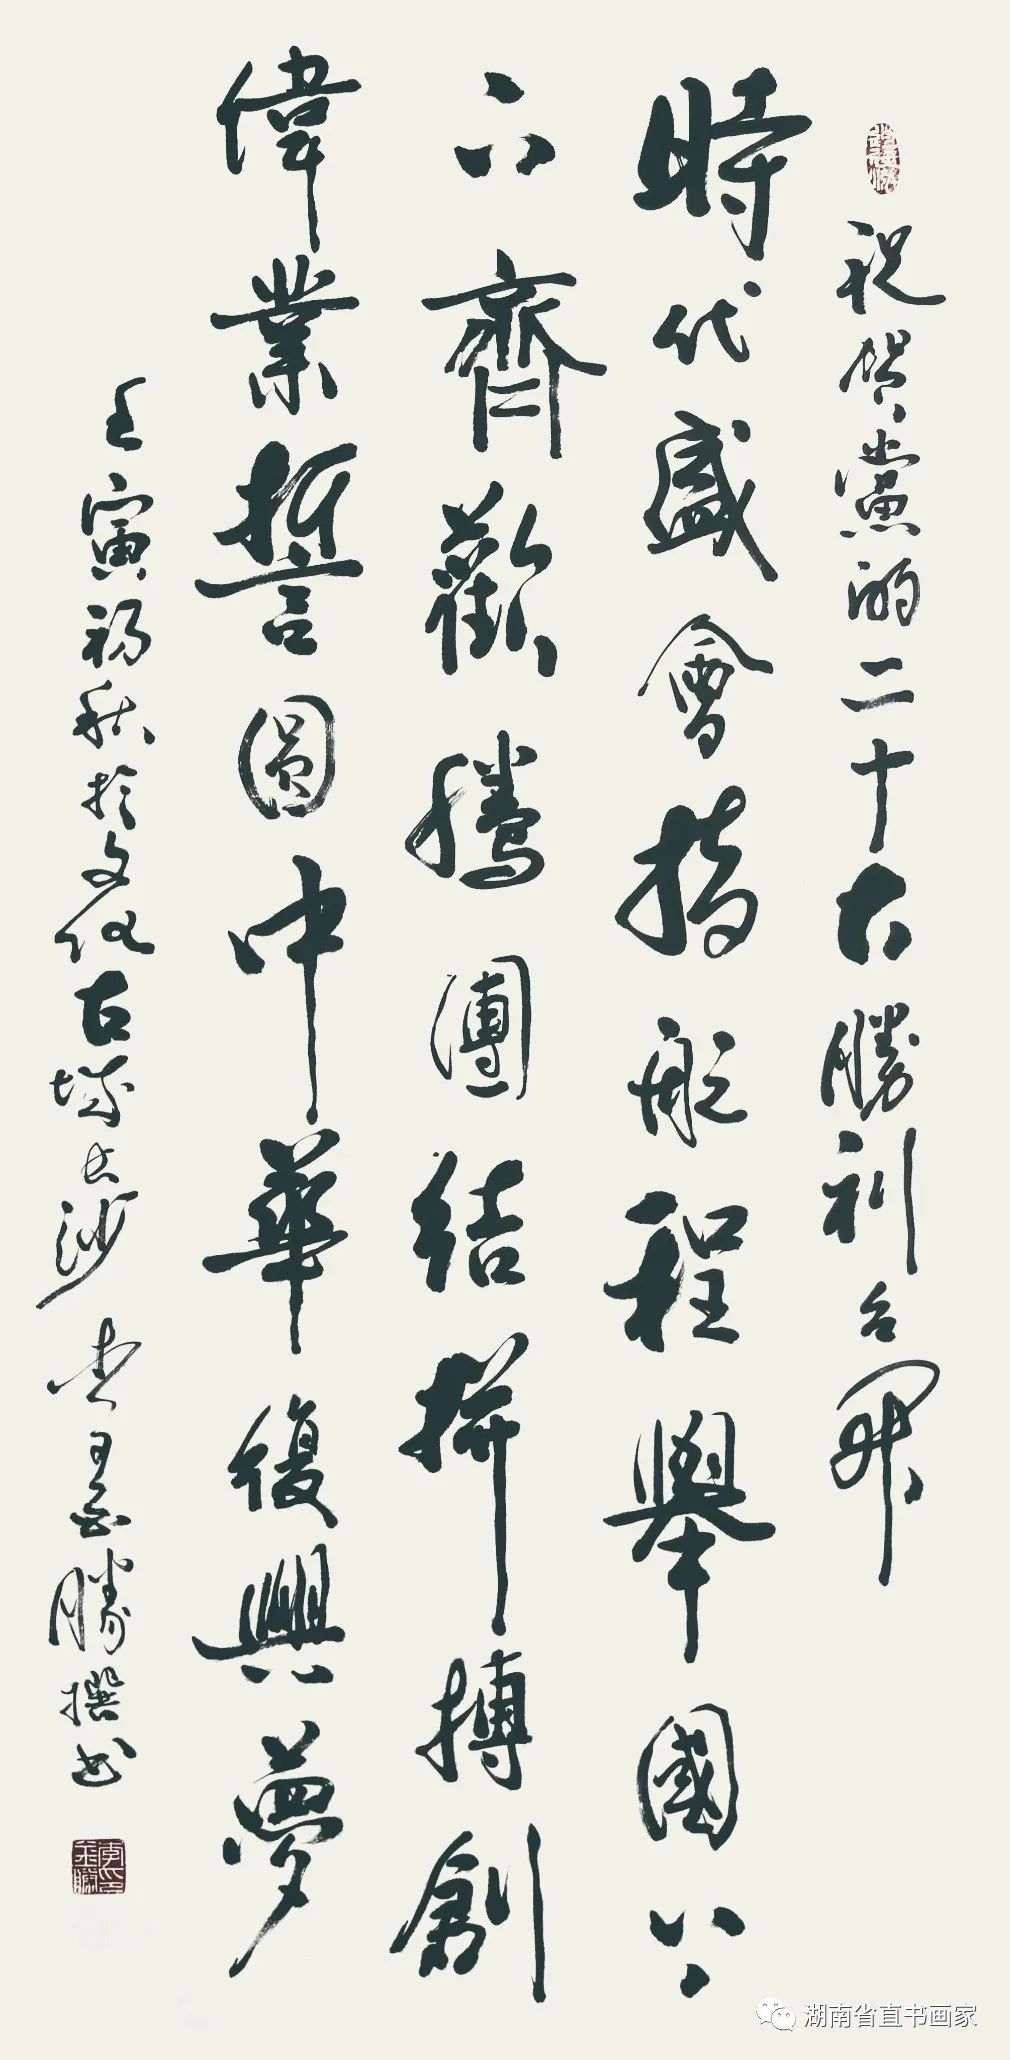 祝賀黨的二十大勝利召開
時代盛會指航程舉國上
下齊歡騰團結拼搏創
偉業誓圓中華復興夢
壬寅初秋於文化古城長沙 李勝撰书
湖南省直书画家